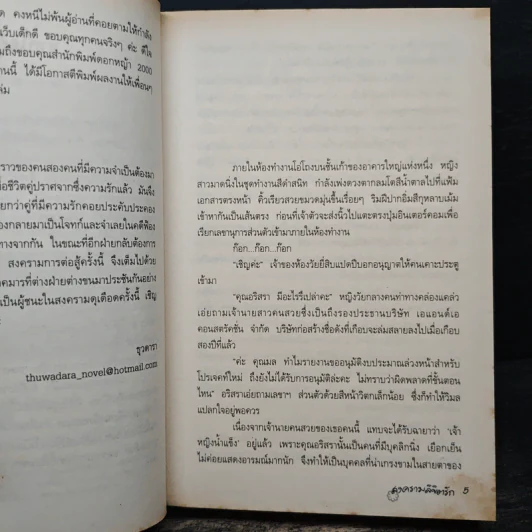 ด คงหนีไม่พ้นผู้อ่านที่คอยตามให้กำลัง
เว็บเด็กดี ขอบคุณทุกคนจริงๆ ค่ะ ดีใจ
มถึงขอบคุณสำนักพิมพ์ดอกหญ้า 2000
านนี้ ได้มีโอกาสตีพิมพ์ผลงานให้เพื่อนๆ
ล่ม
ราวของคนสองคนที่มีความจำเป็นต้องมา
อชีวิตคู่ปราศจากซึ่งความรักแล้ว มันจึง
ยกว่าคู่ที่มีความรักคอยประคับประคอง
องกลายมาเป็นโจทก์และจำเลยในคดีฟ้อง
ทางจากกัน ในขณะที่อีกฝ่ายกลับต้องการ
สงครามการต่อสู้ครั้งนี้ จึงเต็มไปด้วย
คมารที่ต่างฝ่ายต่างขนมาประชันกันอย่าง
เป็นผู้ชนะในสงครามดุเดือดครั้งนี้ เชิญ
ะ
ธุวดารา
thuwadara_novel@hotmail.com
ภายในห้องทำงานโอ่โถงบนชั้นเก้าของอาคารใหญ่แห่งหนึ่ง หญิง
สาวมาดนิ่งในชุดทำงานสีดำสนิท กำลังเพ่งดวงตากลมโตสีน้ำตาลไปที่แฟ้ม
เอกสารตรงหน้า คิ้วเรียวสวยขมวดมุ่นขึ้นเรื่อยๆ ริมฝีปากอิ่มสีกุหลาบเม้ม
เข้าหากันเป็นเส้นตรง ก่อนที่เจ้าตัวจะส่งนิ้วไปแตะตรงปุ่มอินเตอร์คอมเพื่อ
เรียกเลขานุการส่วนตัวเข้ามาภายในห้องทำงาน
ก๊อก...ก๊อก...ก๊อก
“เชิญค่ะ” เจ้าของห้องวัยยี่สิบแปดปีบอกอนุญาตให้คนเคาะประตู
เข้ามา
“คุณอริสรา มีอะไรรึเปล่าคะ” หญิงวัยกลางคนท่าทางคล่องแคล่ว
เอ่ยถามเจ้านายสาวคนสวยซึ่งเป็นถึงรองประธานบริษัท เอแอนด์เอ
คอนสตรัคชั่น จำกัด บริษัทก่อสร้างชื่อดังที่เกือบจะล่มสลายลงไปเมื่อเกือบ
สองปีที่แล้ว
“ค่ะ คุณมล ทำไมรายงานขออนุมัติงบประมาณล่วงหน้าสำหรับ
โปรเจคท์ใหม่ ถึงยังไม่ได้รับการอนุมัติล่ะคะ ไม่ทราบว่าผิดพลาดที่ขั้นตอน
ไหน” อริสราเอ่ยถามเลขาฯ ส่วนตัวด้วยสีหน้าวิตกเล็กน้อย ซึ่งก็ทำให้วิมล
แปลกใจอยู่พอควร
เนื่องจากเจ้านายคนสวยของเธอคนนี้ แทบจะได้รับฉายาว่า ‘เจ้า
หญิงน้ำแข็ง’ อยู่แล้ว เพราะคุณอริสรานั้นเป็นคนที่มีบุคลิกนิ่ง เยือกเย็น
ไม่ค่อยแสดงอารมณ์มากนัก จึงทำให้เป็นบุคคลที่น่าเกรงขามในสายตาของ
5